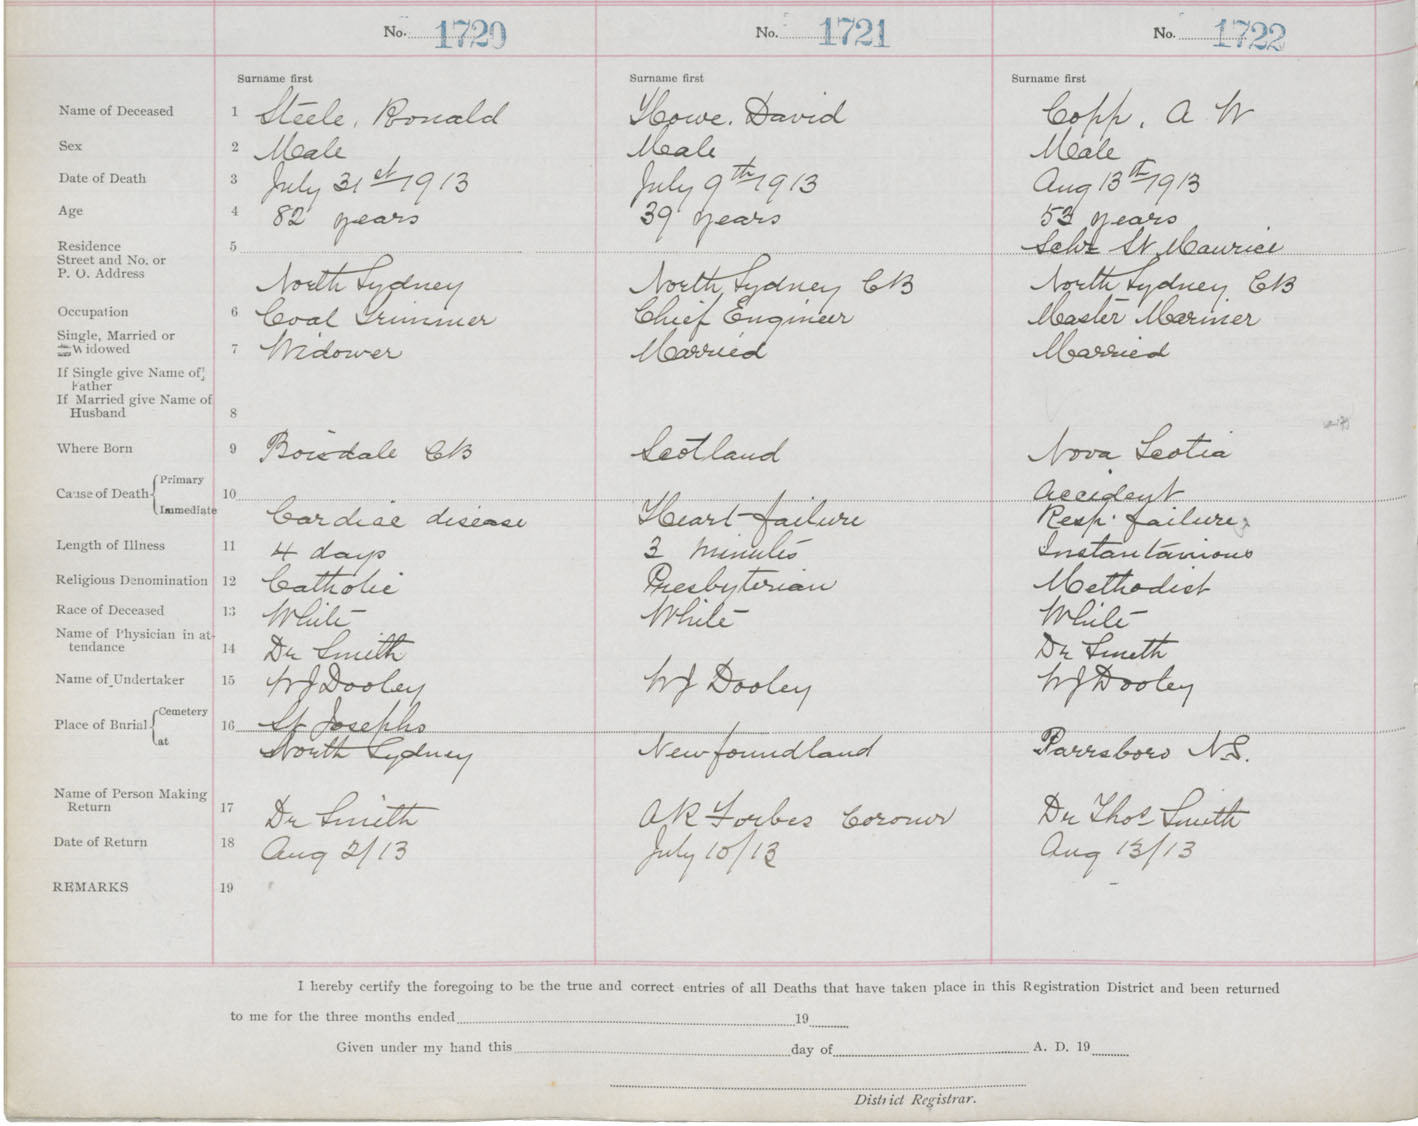 No. 1720 No. 1721 No. 1722
Surname first Surname first Surname first
Name of Deceased 1 Steele, Ronald Howe. David Copp, A W
Sex 2 Male Male Male
Date of Death 3 July 31st 1913 July 9th 1913 Aug 13th 1913
Age 4 82 years 39 years 53 years
Residence 5 Schr St Maurice
Street and No. or
P. O. Address North Sydney North Sydney CB North Sydney CB
Occupation 6 Coal Trimmer Chief Engineer Master Mariner
Single, Married or
Widowed 7 Widower Married Married
If Single give Name of
Father
If Married give Name of
Husband 8
Where Born 9 Boisdale CB Scotland Nova Scotia
Cause of Death Primary 10 Accident
Immediate Cardiac disease Heart failure Resp. failure
Length of Illness 11 4 days 3 minutes Instantanious
Religious Denomination 12 Catholic Presbyterian Methodist
Race of Deceased 13 White White White
Name of Physician in at-
tendance 14 Dr Smith Dr Smith
Name of Undertaker 15 WJ Dooley WJ Dooley WJ Dooley
Place of Burial Cemetery 16 St Josephs
at North Sydney Newfoundland Parrsboro N.S.
Name of Person Making
Return 17 Dr Smith AK Forbes Coroner Dr Thos Smith
Date of Return 18 Aug 2/13 July 10/13 Aug 13/13
REMARKS 19
I hereby certify the foregoing to be the true and correct entries of all Deaths that have taken place in this Registration District and been returned
to me for the three months ended 19
Given under my hand this day of A. D. 19
District Registrar.